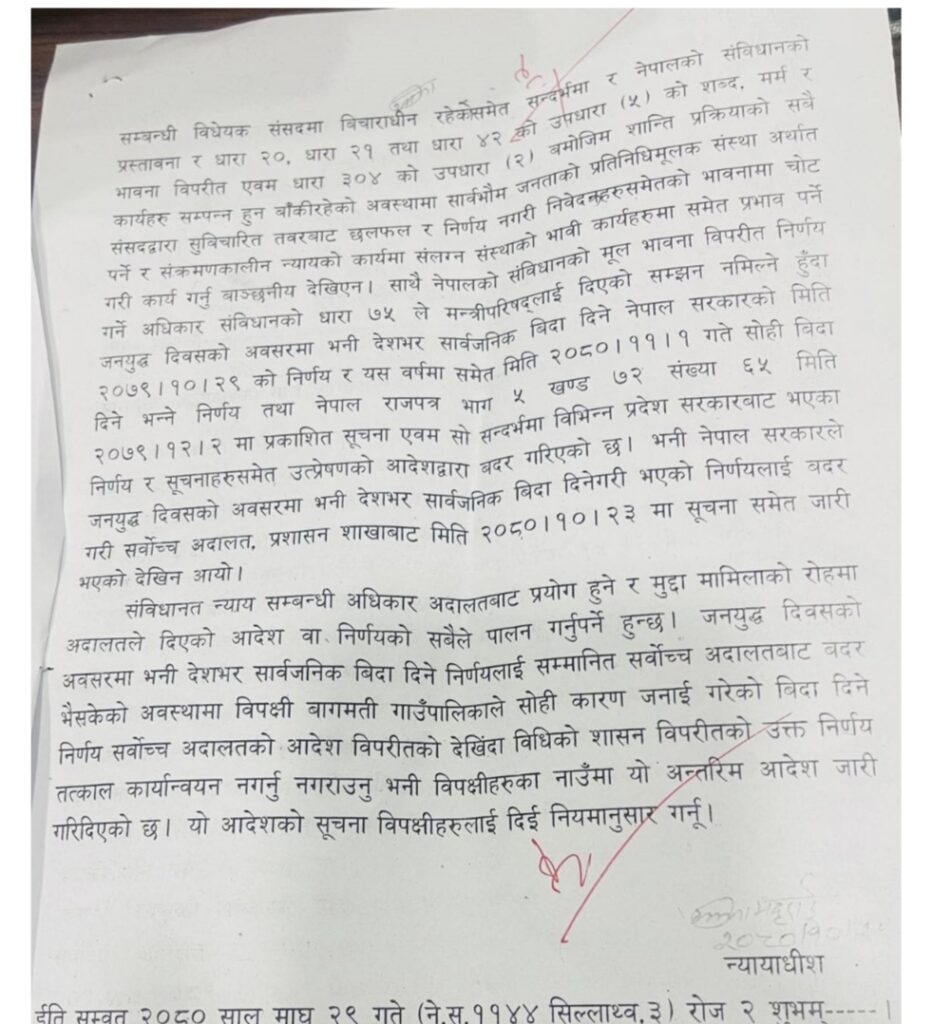 सम्बन्धी विधेयक संसदमा विचाराधीन रहेकोसमेत सन्दर्भमा र नेपालको संविधानको
प्रस्तावना र धारा २०, धारा २१ तथा धारा ४२ को उपधारा (५) को शब्द, मर्म र
भावना विपरीत एवम धारा ३०४ को उपधारा (२) बमोजिम शान्ति प्रक्रियाको सबै
कार्यहरु सम्पन्न हुन बाँकीरहेको अवस्थामा सार्वभौम जनताको प्रतिनिधिमूलक संस्था अर्थात
संसदद्वारा सुविचारित तवरबाट छलफल र निर्णय नगरी निवेदनहरुसमेतको भावनामा चोट
पर्ने र संक्रमणकालीन न्यायको कार्यमा संलग्न संस्थाको भावी कार्यहरुमा समेत प्रभाव पर्ने
गरी कार्य गर्नु बाञ्छनीय देखिएन। साथै नेपालको संविधानको मूल भावना विपरीत निर्णय
गर्ने अधिकार संविधानको धारा ७५ ले मन्त्रीपरिषद्लाई दिएको सम्झन नमिल्ने हुँदा
जनयुद्ध दिवसको अवसरमा भनी देशभर सार्वजनिक बिदा दिने नेपाल सरकारको मिति
२०७९।१०।२९ को निर्णय र यस वर्षमा समेत मिति २०८०।११।१ गते सोही बिदा
दिने भन्ने निर्णय तथा नेपाल राजपत्र भाग ५ खण्ड ७२ संख्या ६५ मिति
२०७९।१२।२ मा प्रकाशित सूचना एवम सो सन्दर्भमा विभिन्न प्रदेश सरकारबाट भएका
निर्णय र सूचनाहरुसमेत उत्प्रेषणको आदेशद्वारा बदर गरिएको छ। भनी नेपाल सरकारले
जनयुद्ध दिवसको अवसरमा भनी देशभर सार्वजनिक बिदा दिनेगरी भएको निर्णयलाई बदर
गरी सर्वोच्च अदालत, प्रशासन शाखाबाट मिति २०८०।१०।२३ मा सूचना समेत जारी
भएको देखिन आयो।
संविधानत न्याय सम्बन्धी अधिकार अदालतबाट प्रयोग हुने र मुद्दा मामिलाको रोहमा
अदालतले दिएको आदेश वा निर्णयको सबैले पालन गर्नुपर्ने हुन्छ। जनयुद्ध दिवसको
अवसरमा भनी देशभर सार्वजनिक बिदा दिने निर्णयलाई सम्मानित सर्वोच्च अदालतबाट बदर
भैसकेको अवस्थामा विपक्षी बागमती गाउँपालिकाले सोही कारण जनाई गरेको बिदा दिने
निर्णय सर्वोच्च अदालतको आदेश विपरीतको देखिंदा विधिको शासन विपरीतको उक्त निर्णय
तत्काल कार्यान्वयन नगर्नु नगराउनु भनी विपक्षीहरुका नाउँमा यो अन्तरिम आदेश जारी
गरिदिएको छ। यो आदेशको सूचना विपक्षीहरुलाई दिई नियमानुसार गर्नू।
न्यायाधीश
ईति सम्वत २०८० साल माघ २९ गते (ने.स.११४४ सिल्लाथ्व,३) रोज २ शुभम-----।